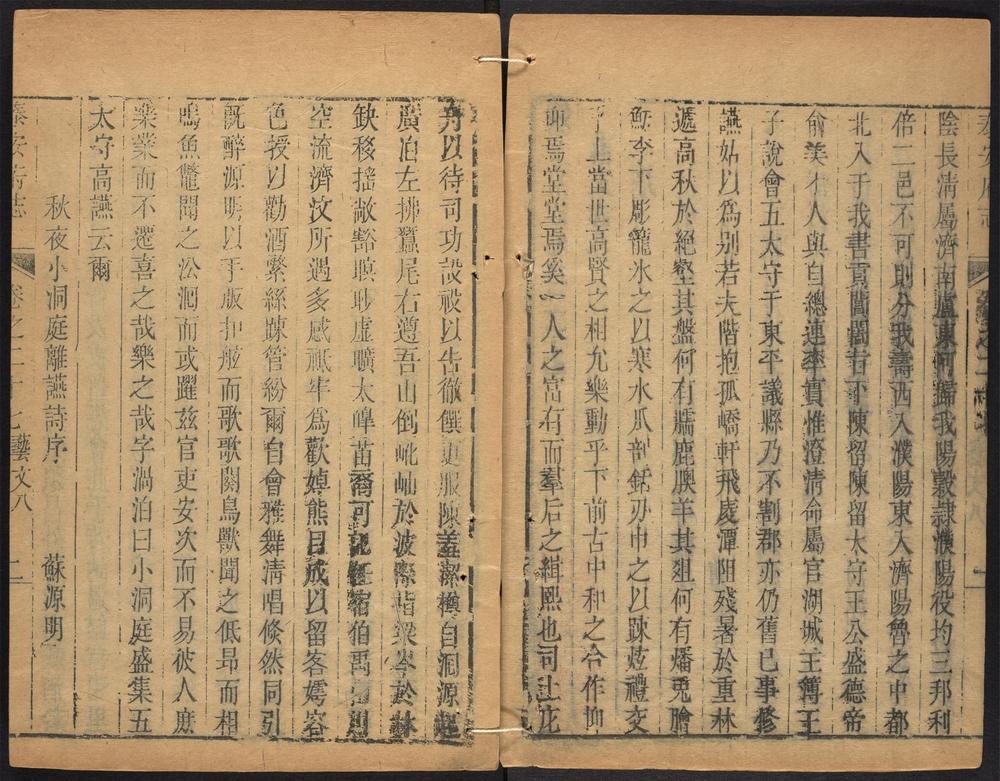 陰長淸屬濟南盧東阿歸我陽穀隸濮陽役均三邦利
倍二邑不可則分我壽西入濮陽東入濟陽魯之中都
北入于我書貢閤閤若不陳留陳留太守王公盛德帝
俞美才人與自總連率實惟澄淸命屬官湖城王簿王
子說會五太守于東平議縣乃不割郡亦仍舊已事修
讌姑以爲别若夫階抱孤嶠軒飛處潭阻殘暑於重林
遞高秋於絕壑其盤何有臑鹿腴羊其俎何有燔兎膾
魴李下彫籠氷之以寒水瓜剖銛刃巾之以踈炫禮交
于上當世高賢之相允樂動乎下前古中和之合作抑
卹焉堂堂焉奚一人之富有而羣后之緝熙也司土庀
舟以待司功設祋以告徹饌更服陳羞潔樽自洄源起
廣泊左拂蠶尾右遵吾山倒岮岫於波際㫮梁岑於林
缺移搖敞豁瞑眇虛曠太皥苗裔可記任宿伯禹
空流濟汶所遇多感祗牢爲歡婥態目成以留客嫮容
色授以勸酒繁絲踈管紛爾自會雅舞淸唱倏然同引
旣醉源明以手版扣舷而歌歌闋鳥獸聞之低昂而相
鳴魚鼈聞之沄洄而或躍兹官吏安次而不易彼人庶
樂業而不遷喜之哉樂之哉字渦泊曰小洞庭盛集五
太守高讌云爾
秋夜小洞庭離讌詩序 蘇源明
泰安府志 卷之二十七藝文八 二